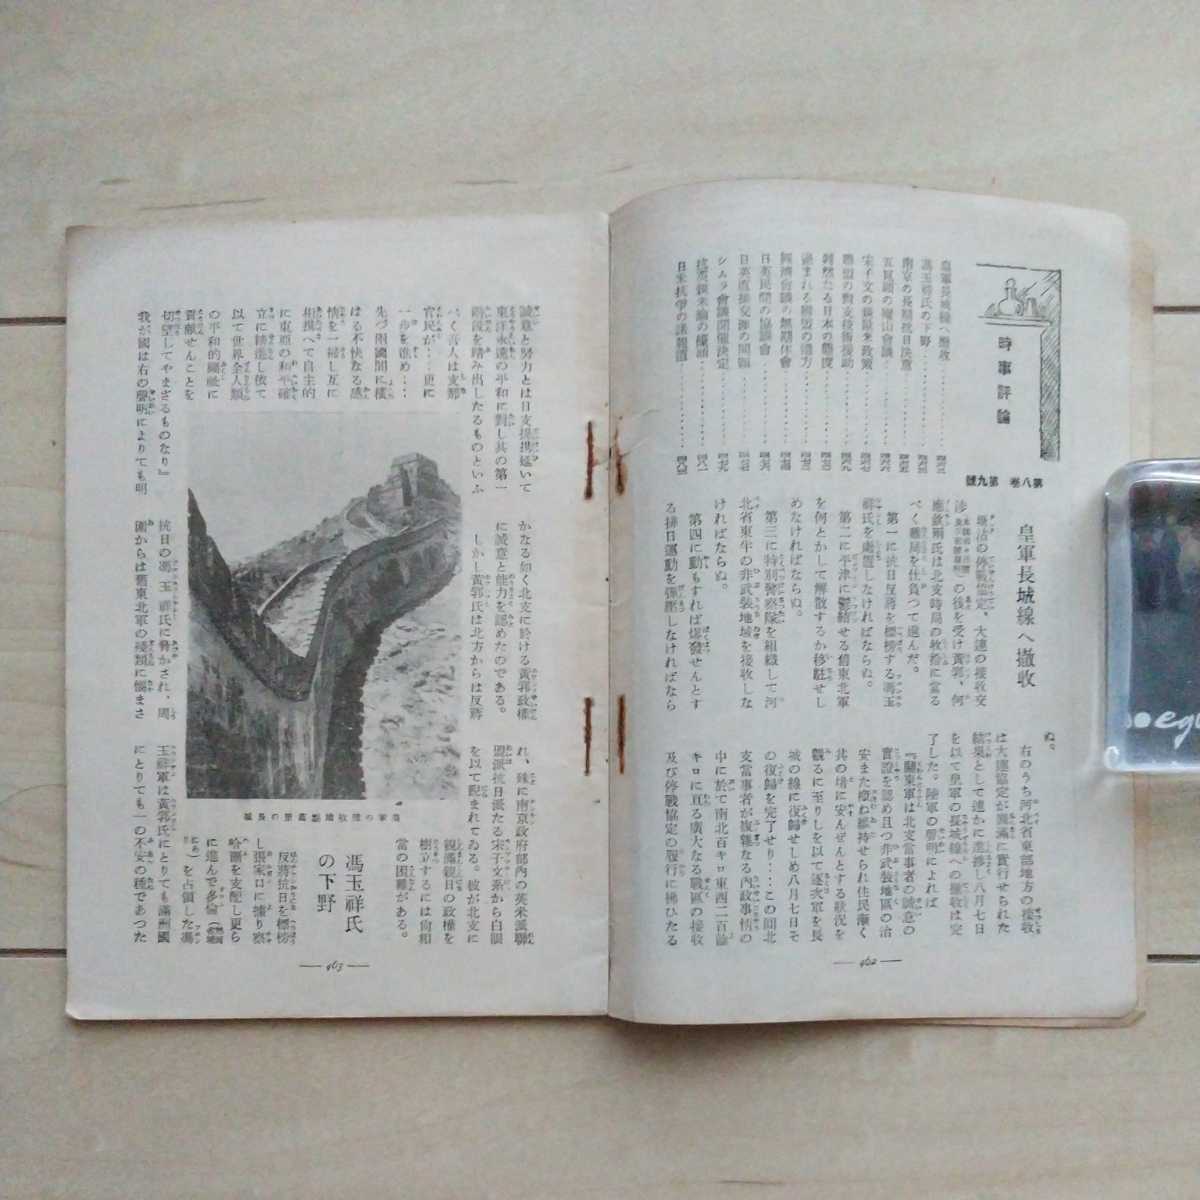 時事評論
第八卷 第九號
皇軍長城線へ撤收
馮玉祥氏の下野
南京の長期抗日決意
五巨頭の廬山會議
宋子文の
聯盟の對支技術援助
日本の態度
聯盟の遣方
經濟會議の無期休會
日英民間の協議會
日英直接交渉の問題
シムラ會議開催決定
皇軍長城線へ撤收
塘沽の停戰協定、大連の接收交
渉の後を受け黃郛、何
應欽兩氏は北支時局の收拾に當る
べく難局を仕負つて進んだ。
第一に抗日反蔣を標榜する馮玉
祥氏を處置しなければならぬ。
第二に平津に鬱結せる舊東北軍
を何とかして解散するか移駐せし
めなければならぬ。
第三に特別警察隊を組織して河
北省東半の非武裝地域を接收しな
ければならぬ。
第四に動もすれば爆發せんとす
る排日運動を彈壓しなければなら
ぬ。
右のうち河北省東部地方の接收
は大連協定が圓滿に實行せられた
結果として速かに進渉し八月七日
を以て皇軍の長城線への撤收は完
了した。陸軍の聲明によれば
『關東軍は北支當事者の誠意の
實證を認め且つ非武裝地區の治
安また槪ね維持せられ住民漸く
其の堵に安んぜんとする狀況を
觀るに至りしを以て逐次軍を長
城の線に復歸せしめ八月七日そ
の復歸を完了せり…この間北
支當事者が複雜なる內政事情の
中に於て南北百キロ東西二百餘
キロに亘る廣大なる戰區の接收
及び停戰協定の履行に拂ひたる
462
誠意と努力とは日支提携延いて
東洋永遠の平和に對し其の第一
階段を踏み出したるものといふ
べく吾人は支那
官民が…更に
一步を進め…
先づ兩國間に橫
はる不快なる感
情を一掃し互に
相携へて自主的
に東亞の和平確
立に精進し依て
以て世界全人類
の平和的福祉に
貢獻せんことを
切望してやまざるものなり』
我が國は右の聲明によりても明
かなる如く北支に於ける黃郛政權
に誠意と能力を認めたのである。
しかし黃郛氏は北方からは反蔣
抗日の馮玉祥氏に脅かされ、周
圍からは舊東北軍の殘類に惱まさ
れ、殊に南京政府部內の英米派聯
盟派抗日派たる宋子文系から白眼
を以て睨まれてゐる。彼が北支に
親滿親日の政權を
樹立するには尙相
當の困難がある。
馮玉祥氏
の下野
反蔣抗日を標榜
し張家口に據り察
哈爾を支配し更ら
に進んで多倫
を占領した馮
玉祥軍は黃郛氏にとりても滿洲國
にとりても一の不安の種であつた
463